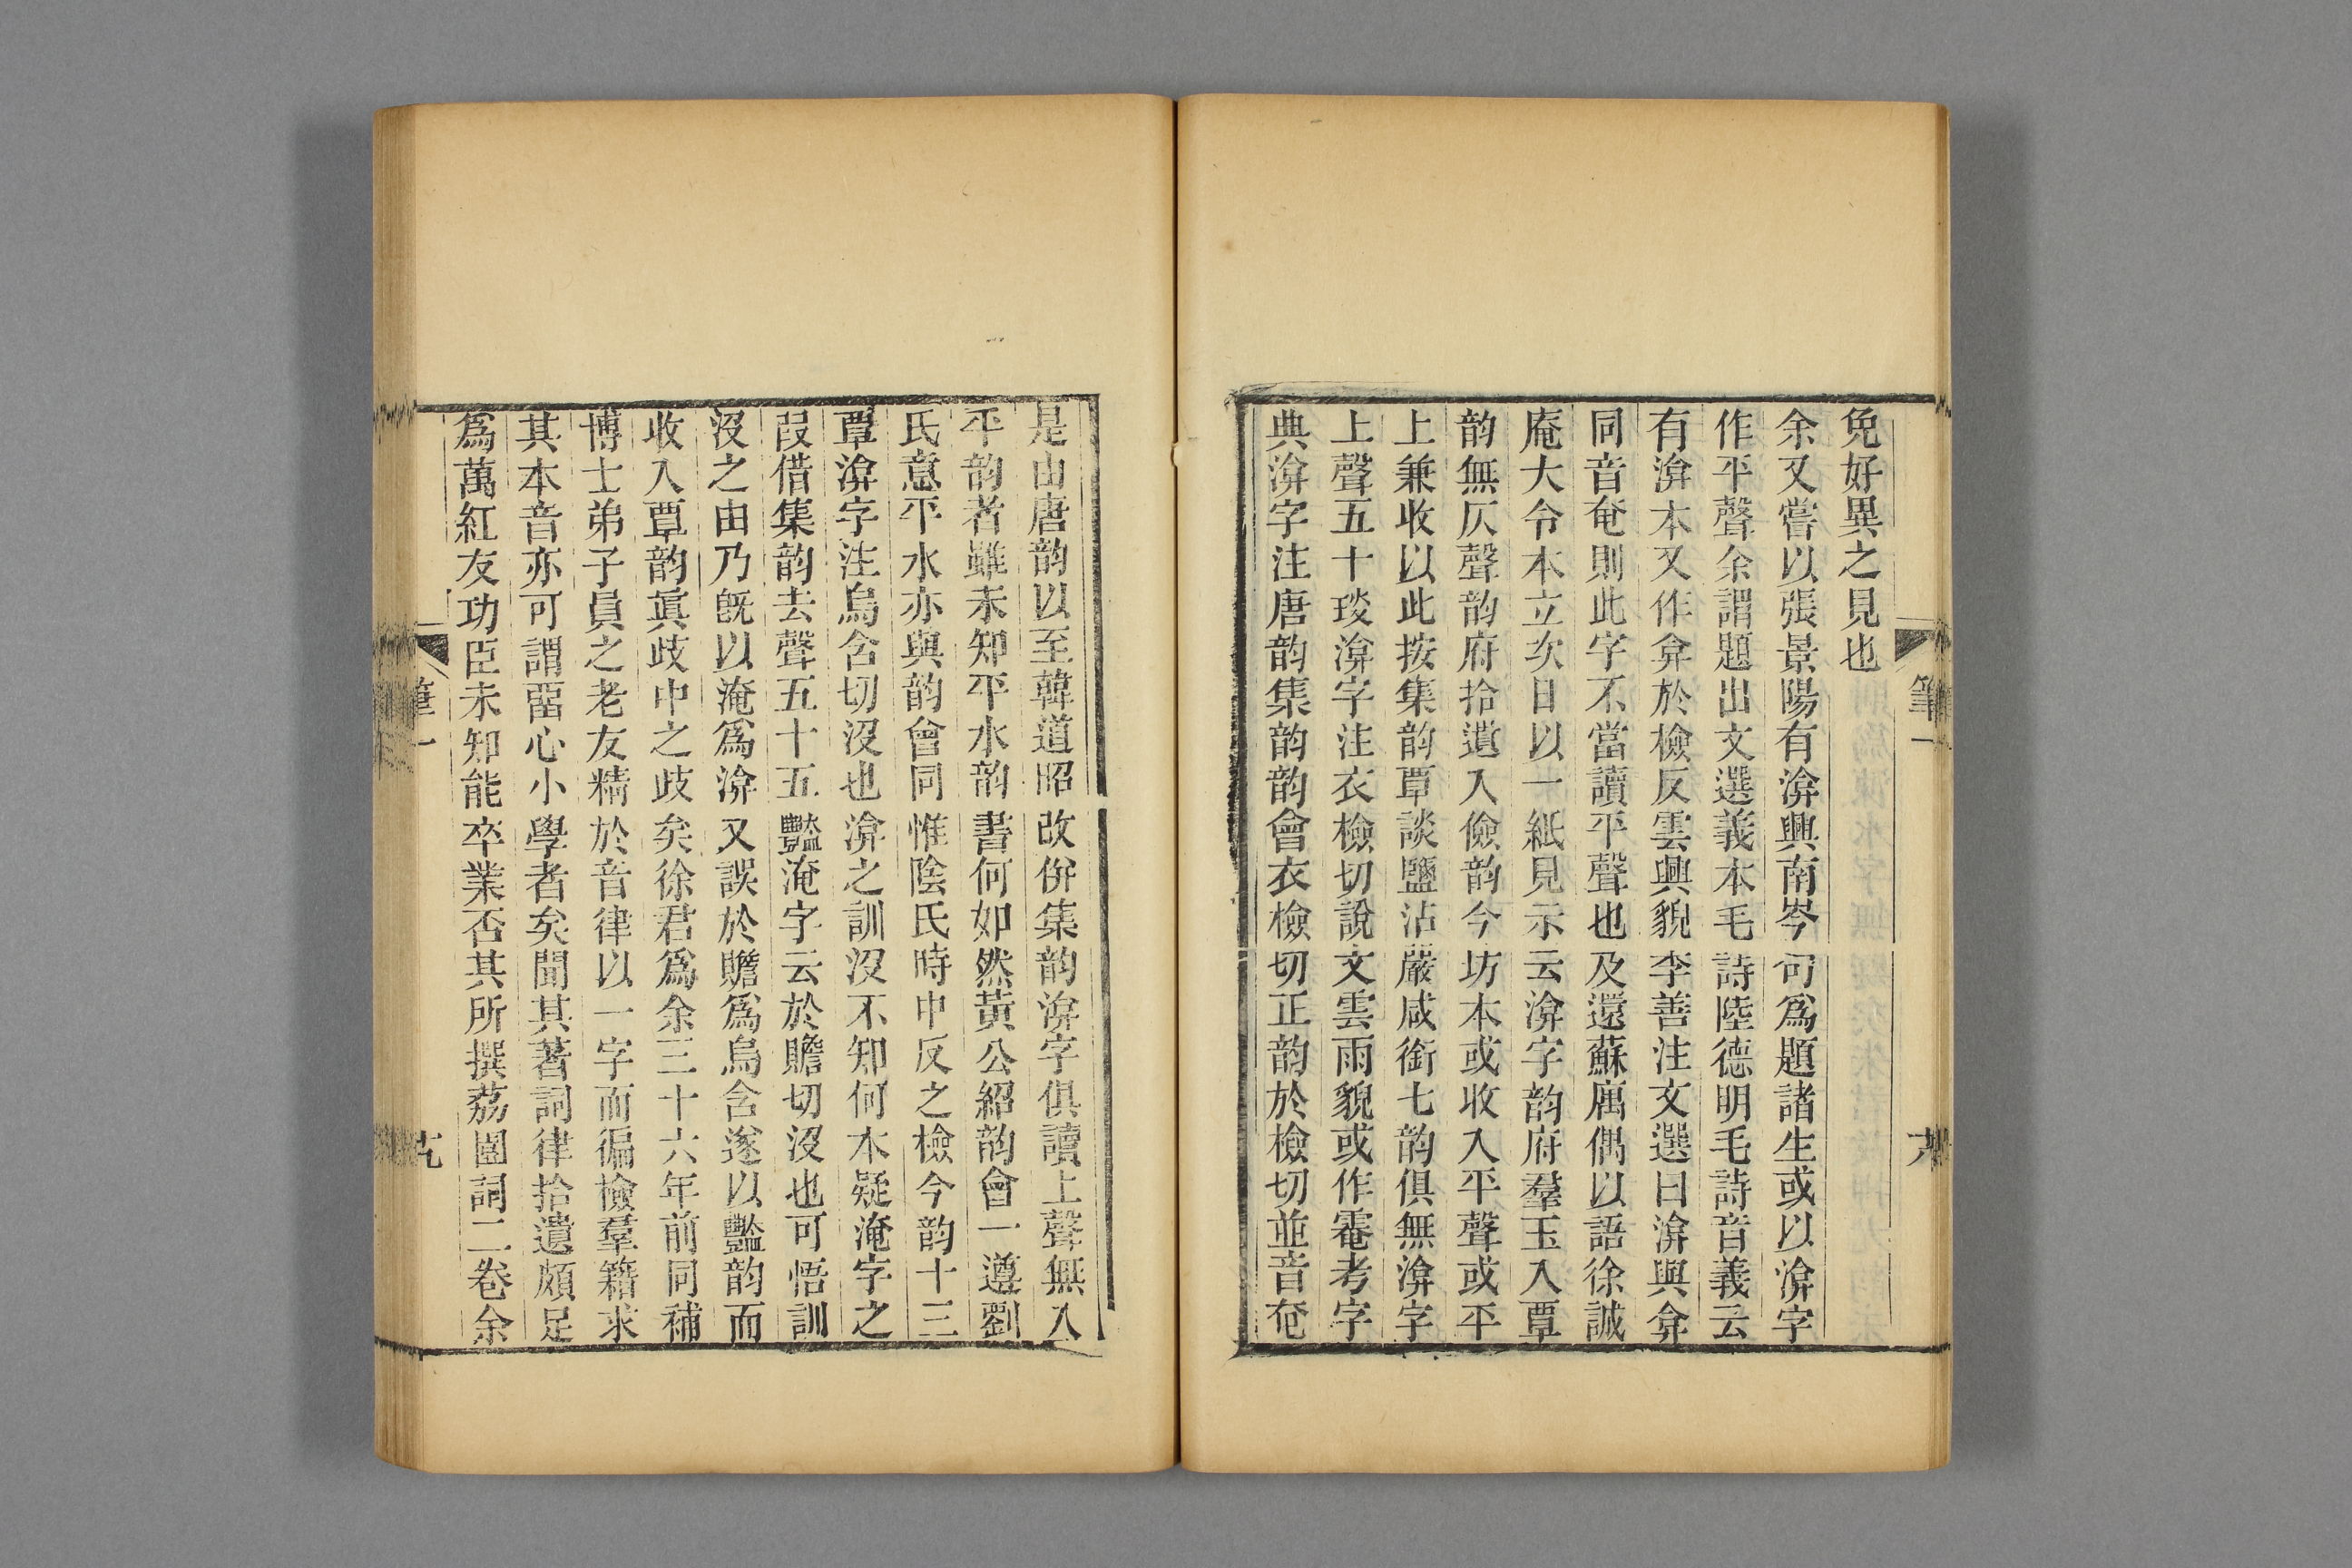 筆一
免好異之見也
余又嘗以張景陽有渰興南岑句爲題諸生或以渰字
作平聲余謂題出文選義本毛詩陸德明毛詩音義云
有渰本又作弇於檢反雲興貌李善注文選曰渰與弇
同音奄則此字不當讀平聲也及還蘇寓偶以語徐誠
庵大令本立次日以一紙見示云渰字韵府羣玉入覃
韵無仄聲韵府拾遺入儉韵今坊本或收入平聲或平
上兼收以此按集韵覃談鹽沾嚴咸銜七韵俱無渰字
上聲五十琰渰字注衣檢切說文雲雨貌或作黤考字
典渰字注唐韵集韵韵會衣檢切正韵於檢切並音奄
是由唐韵以至韓道昭改併集韵渰字俱讀上聲無入
平韵者雖未知平水韵書何如然黃公紹韵會一遵劉
氏意平水亦與韵會同惟陰氏時中反之檢今韵十三
覃渰字注烏含切沒也渰之訓沒不知何本疑淹字之
叚借集韵去聲五十五豔淹字云於贍切沒也可悟訓
沒之由乃旣以淹爲渰又誤於贍爲烏含遂以豔韵而
收入覃韵眞歧中之歧矣徐君爲余三十六年前同補
博士弟子員之老友精於音律以一字而徧檢羣籍求
其本音亦可謂畱心小學者矣聞其著詞律拾遺頗足
爲萬紅友功臣未知能卒業否其所撰荔園詞二卷余
筆一